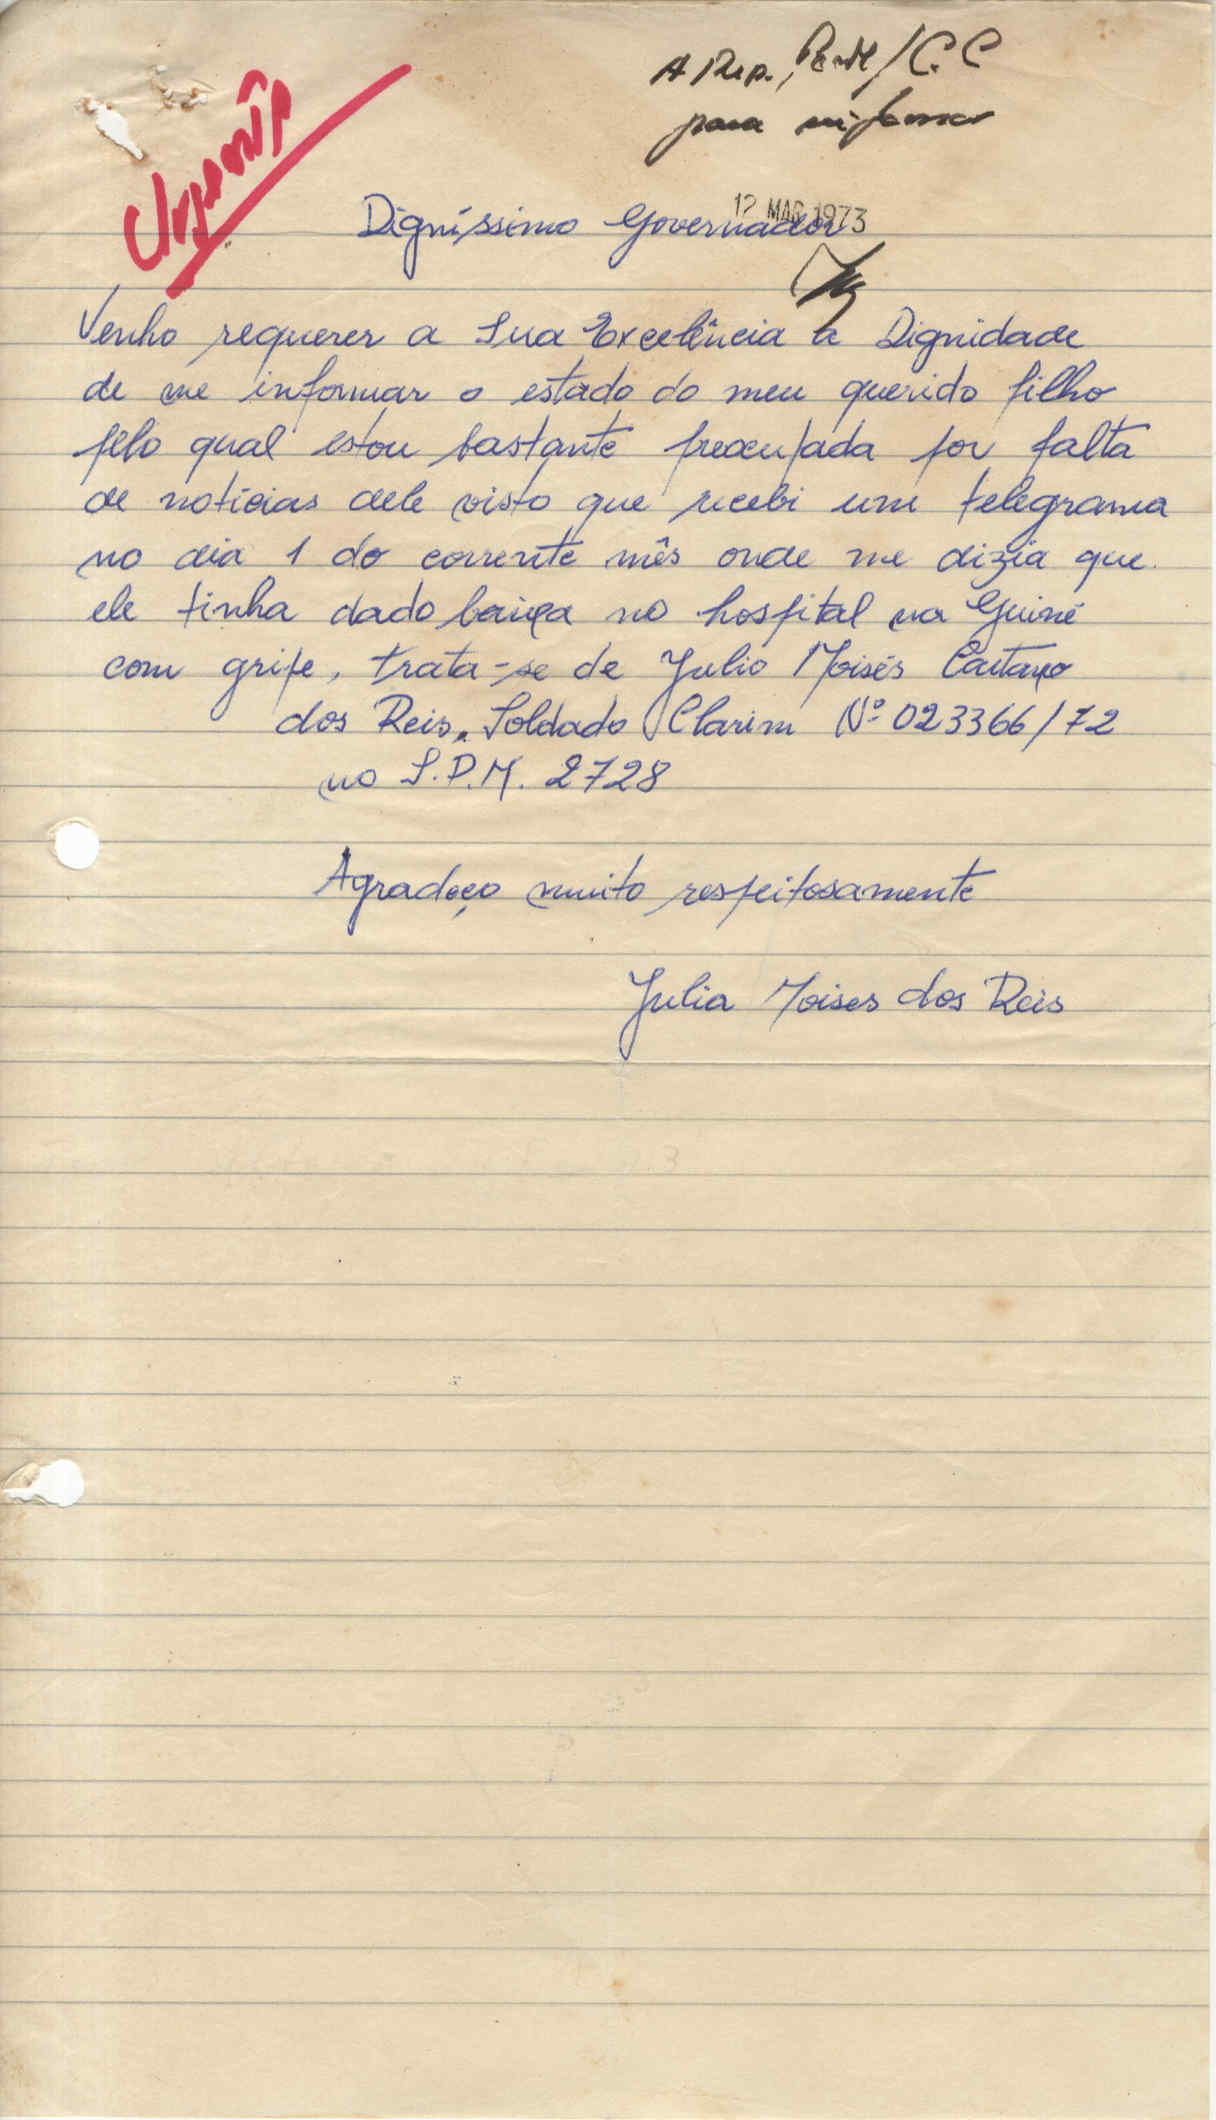 Urgente
A Rep. Pess/C.C
para informar
12 MAR 1973
Digníssimo Governador
Venho requerer a Sua Excelência a Dignidade
de me informar o estado do meu querido filho
pelo qual estou bastante preocupada por falta
de notícias dele visto que recebi um telegrama
no dia 1 do corrente mês onde me dizia que
ele tinha dado baixa no hospital na Guiné
com gripe, trata-se de Julio Moisés Caetano
dos Reis, Soldado Clarim Nº 023366/72
no S.P.M. 2728
Agradeço muito respeitosamente
Julia Moises dos Reis